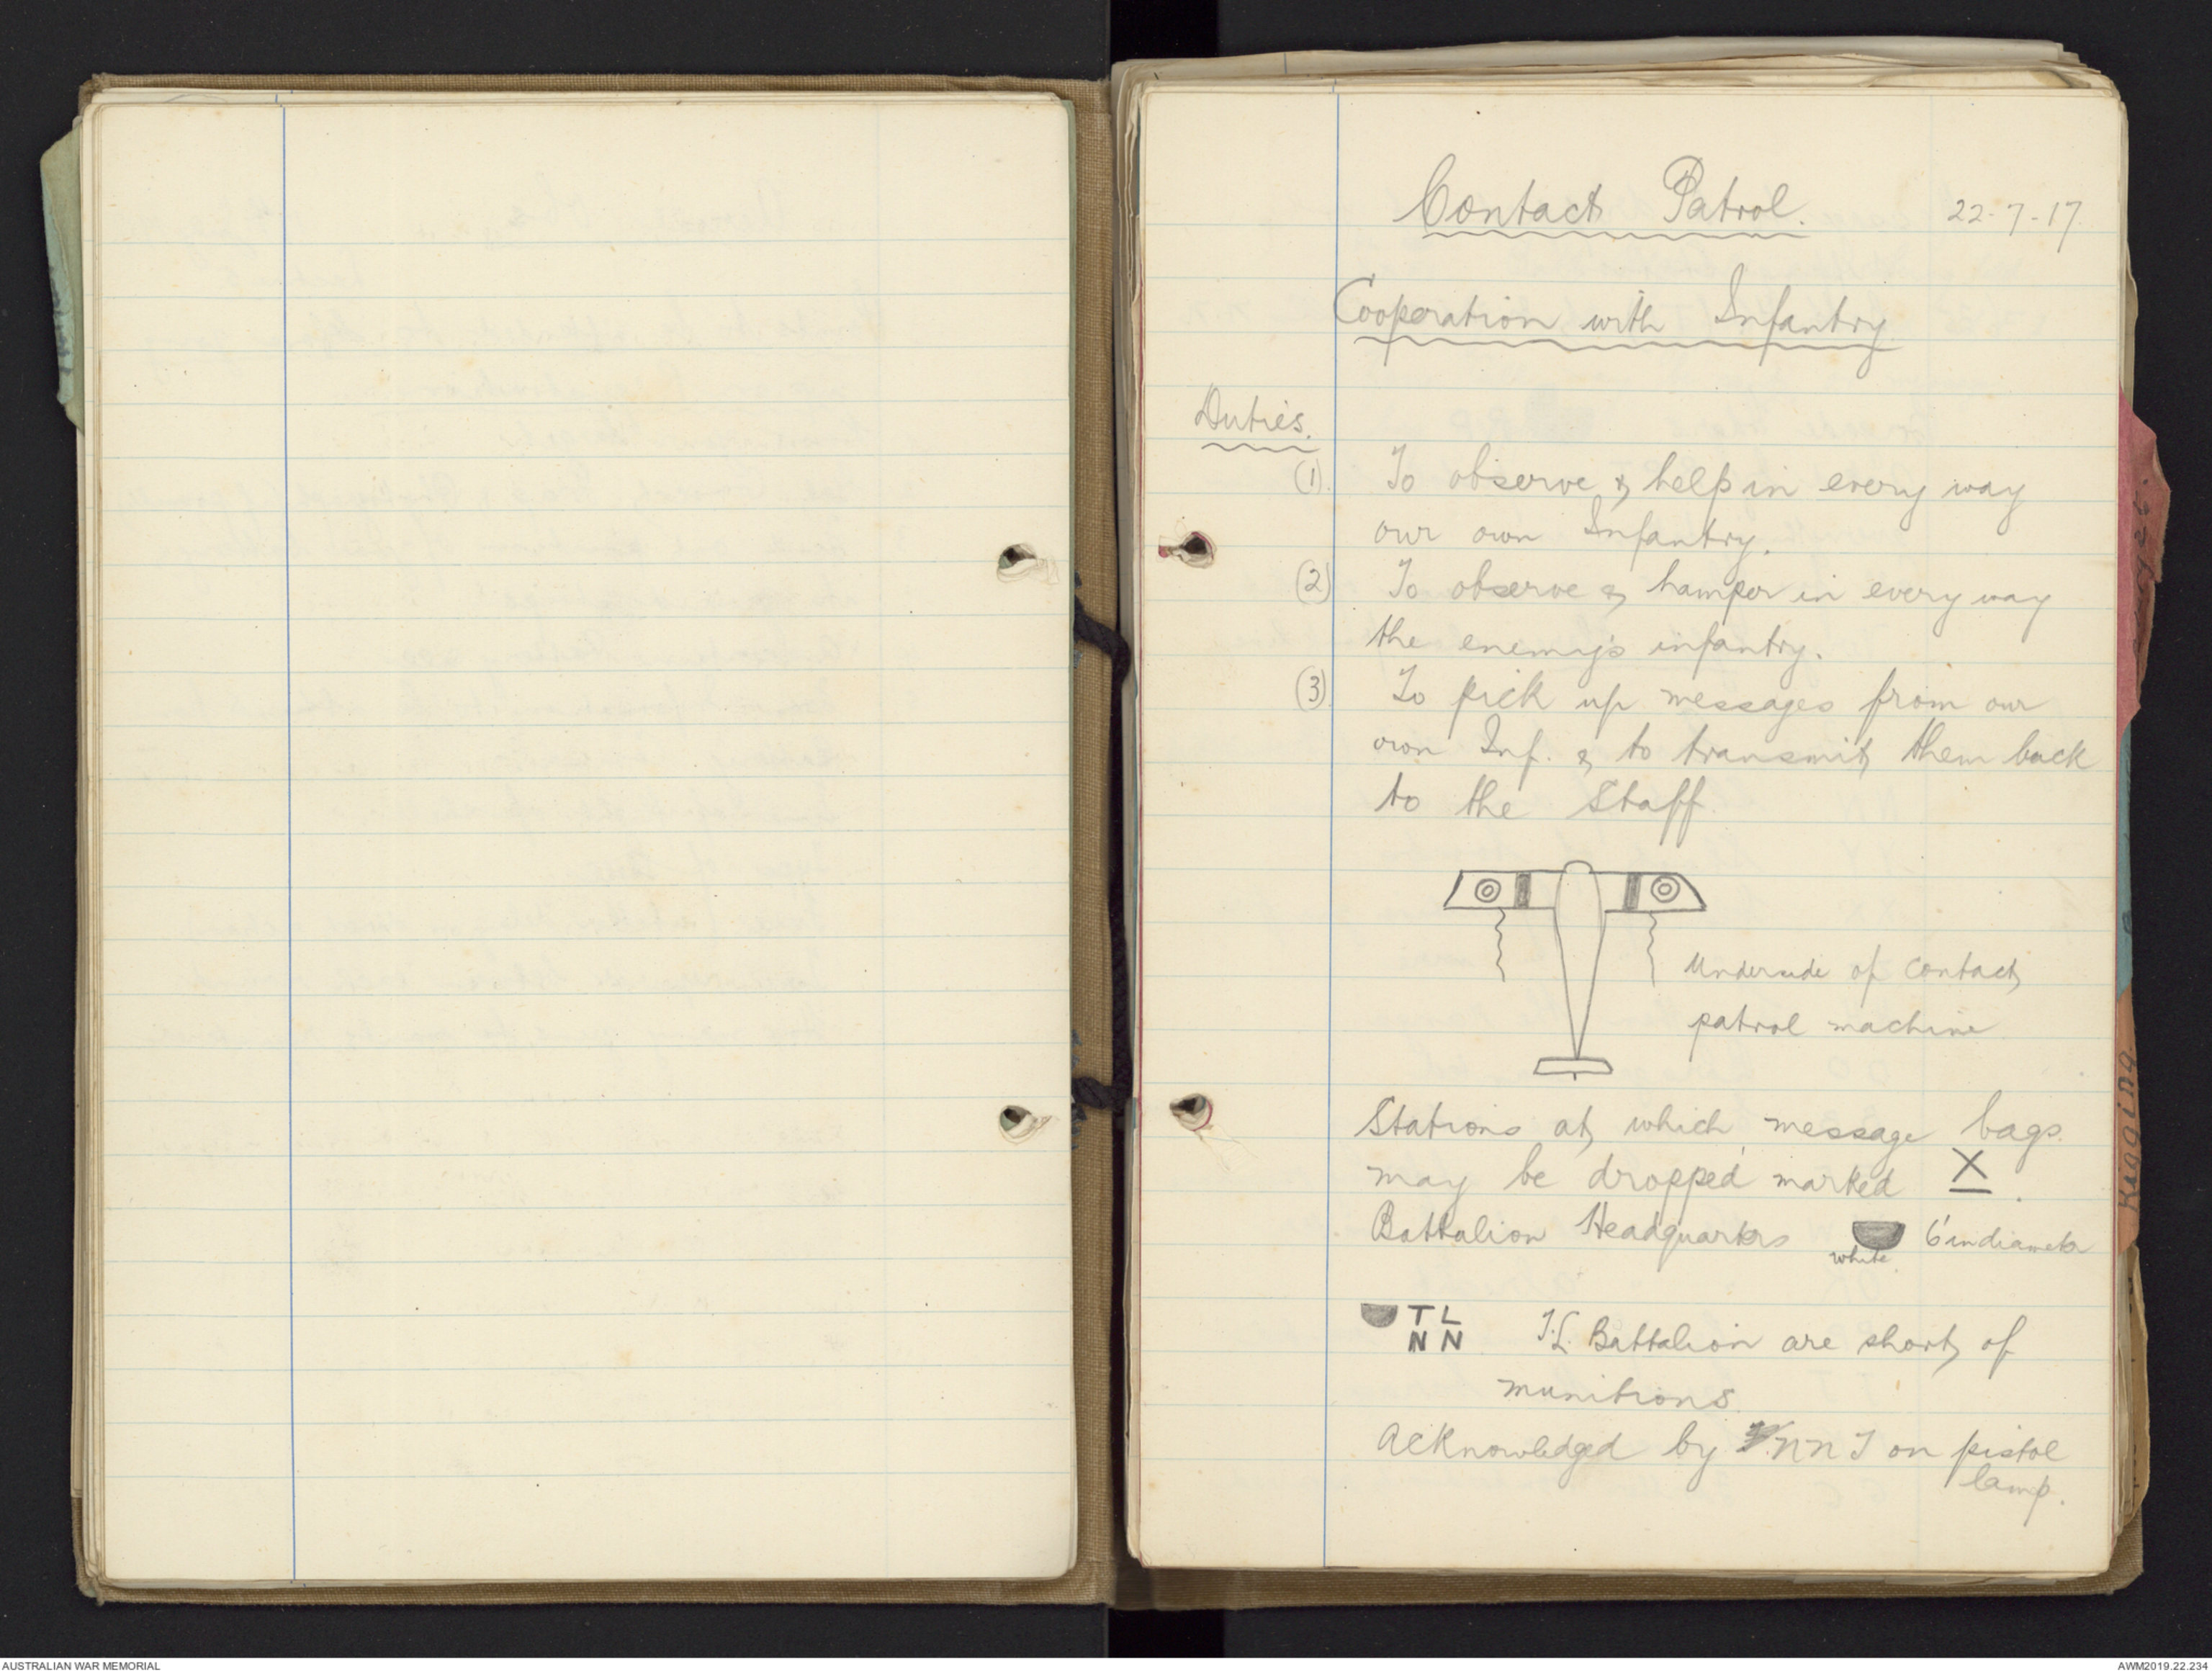 Contact Patrol. 22-7-17
Cooperation with Infantry
Duties.
(1). To observe & help in every way
our own Infantry.
(2) To observe & hamper in every way
the enemy's infantry.
(3). To pick up messages from our
own Inf. & to transmit them back
to the Staff.
Underside of Contact
patrol machine
Stations at which message bags
may be dropped marked X.
Battalion Headquarters 6' in diameter
white
T L
N N
T.L. Battalion are short of
munitions.
Acknowledged by NNT on pistol
lamp.
Rigging
AUSTRALIAN WAR MEMORIAL
AWM2019.22.234